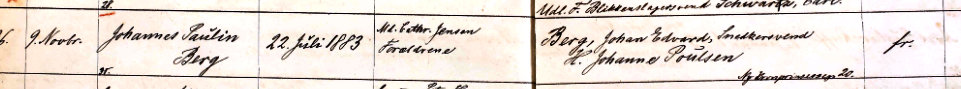 28.
Udl. F. Blikkenslagersvend Schwartz, Carl.
6. 9. Novbr. Johannes Paulin 22. Juli 1883 Md. Cathr. Jensen Berg, Johan Edvard, Snedkersvend fr.
Berg Forældrene H. Johanne Poulsen
Ny Kronprindsessesg. 20.